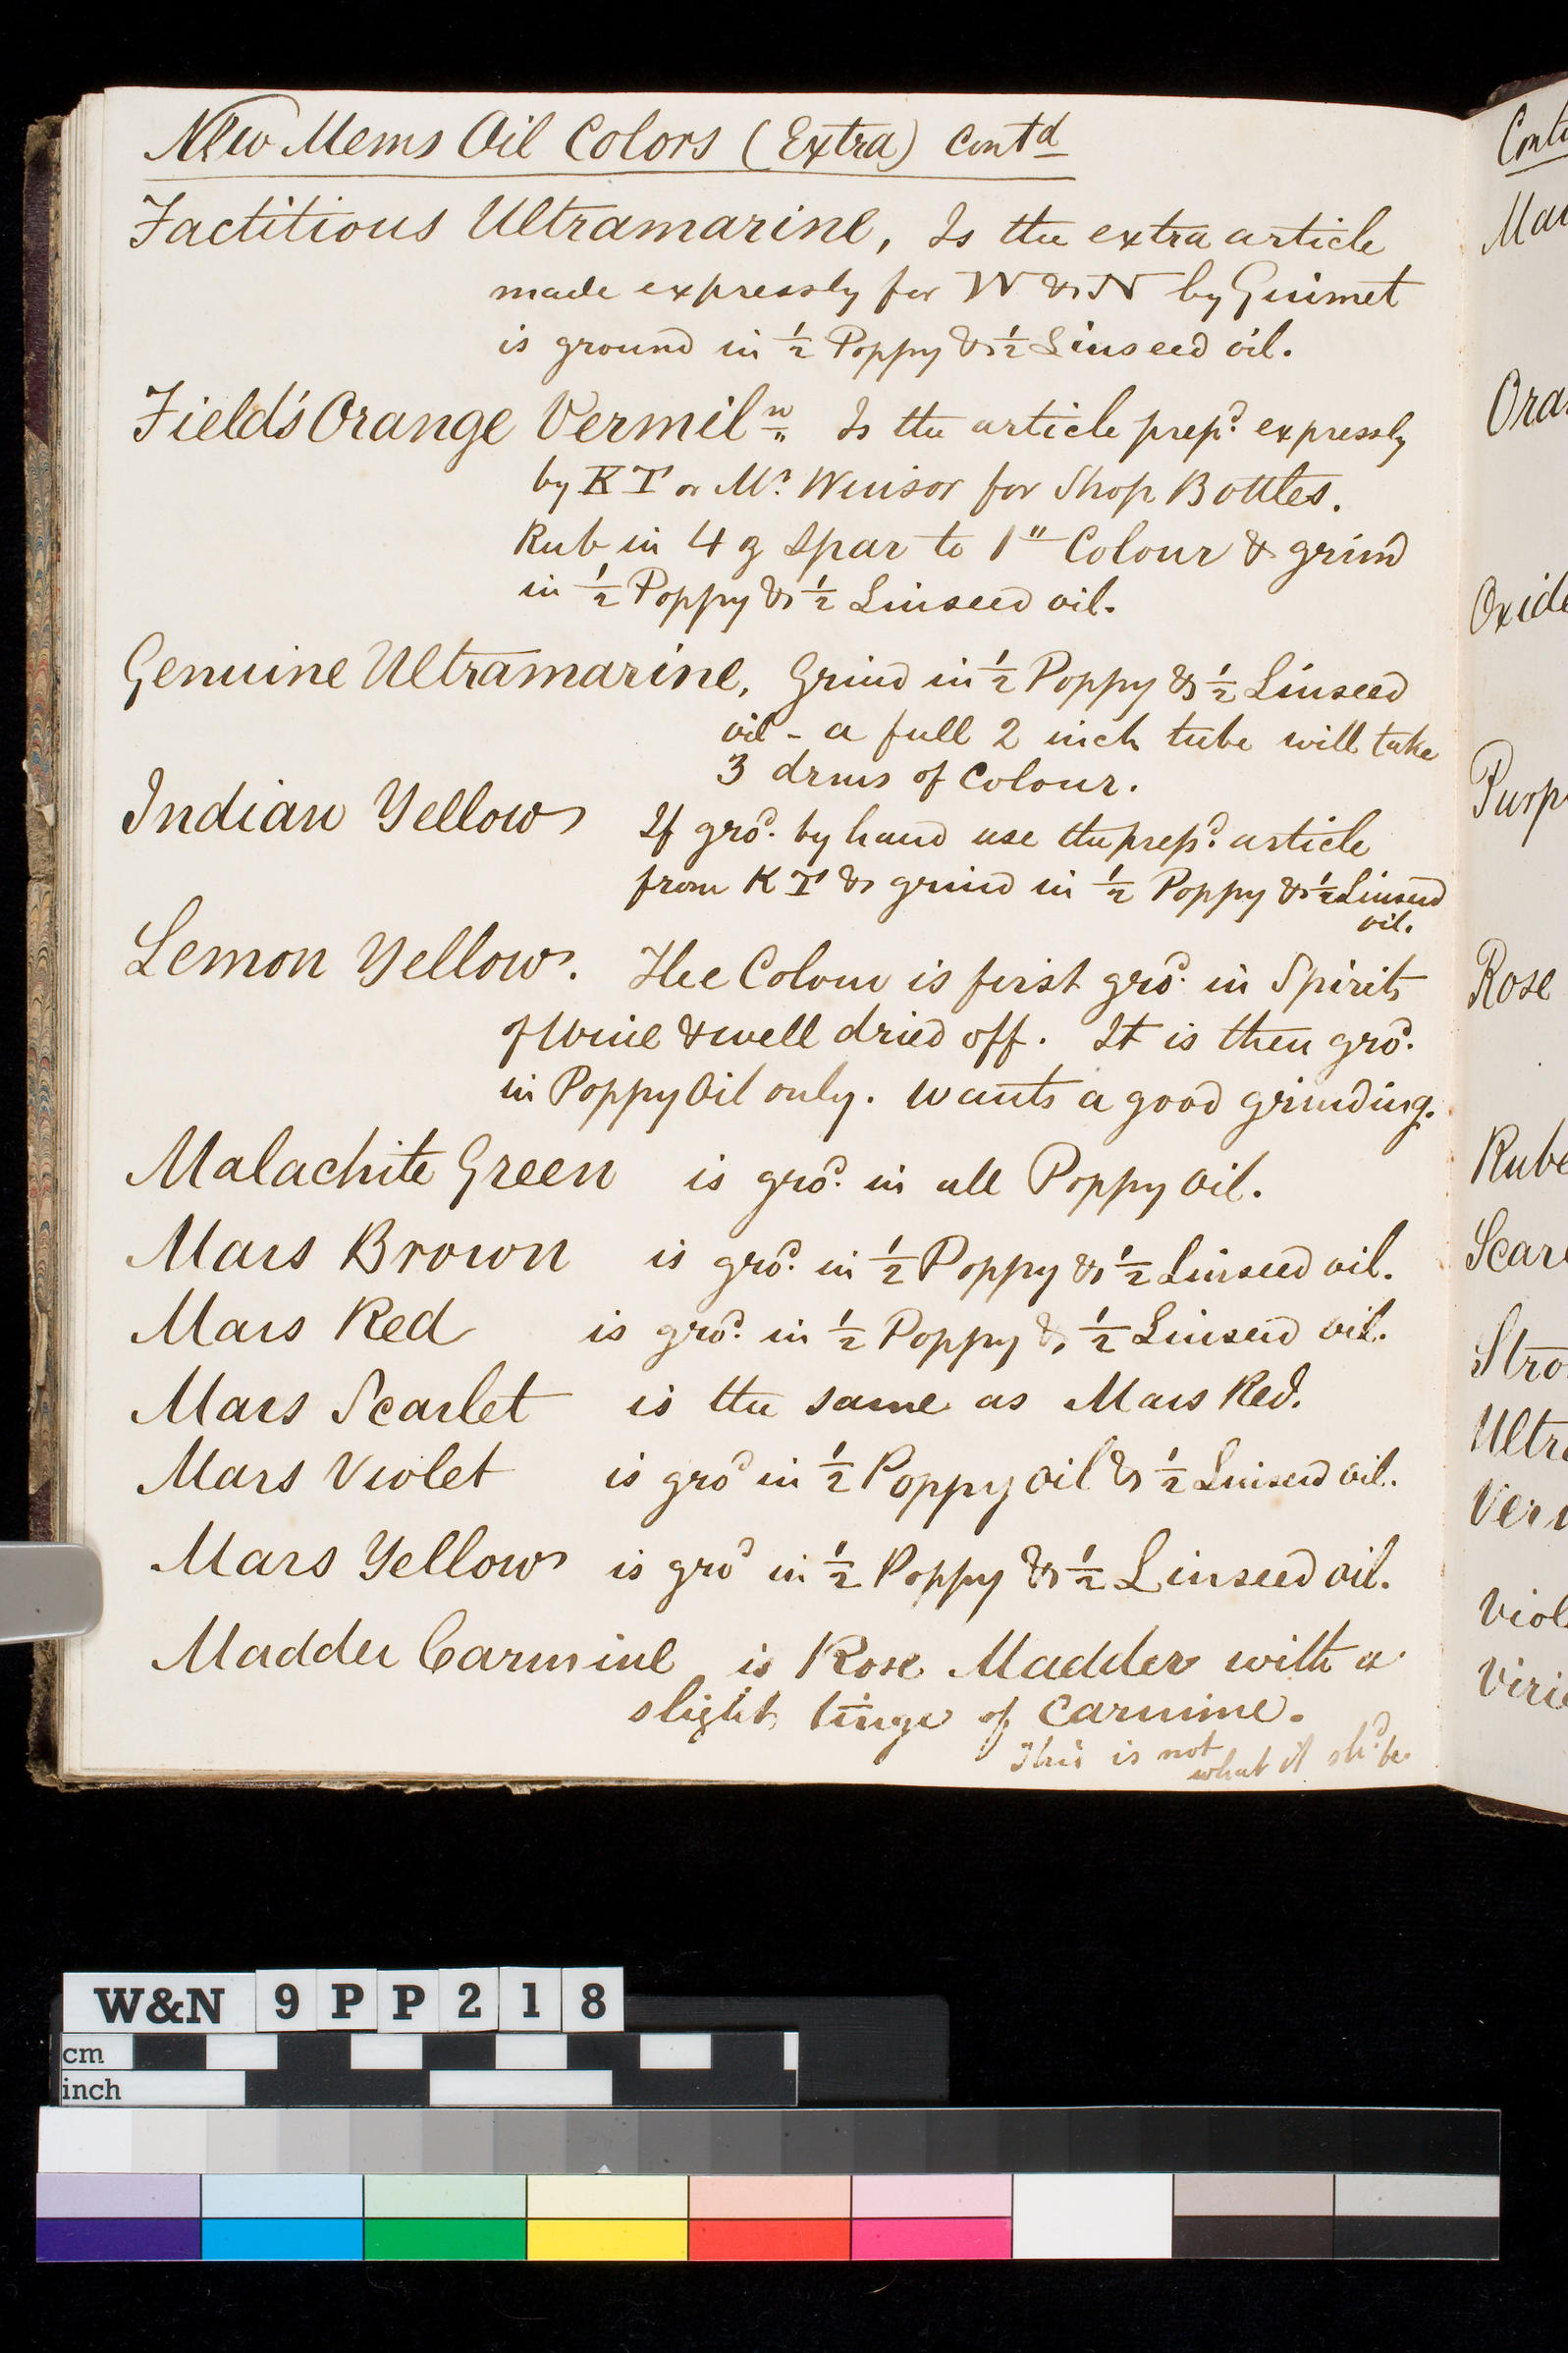 New Mems Oil Colors (Extra) Contd
Factitious Ultramarine, Is the extra article
made expressly for W & N by Guimet
is ground in ½ Poppy & ½ Linseed oil.
Field's Orange Vermiln Is the article prepd expressly
by KT or Mr. Winsor for Shop Bottles.
Rub in 4 oz Spar to 1lb Colour & grind
in ½ Poppy & ½ Linseed oil.
Genuine Ultramarine, Grind in ½ Poppy & ½ Linseed
oil - a full 2 inch tube will take
3 drms of Colour.
Indian Yellow If grod. by hand use the prepd. article
from KT & grind in ½ Poppy & ½ Linseed
oil.
Lemon Yellow. The Colour is first grod. in Spirits
of Wine & well dried off. It is then grod.
in Poppy Oil only. wants a good grinding.
Malachite Green is grod. in all Poppy oil.
Mars Brown is grod. in ½ Poppy & ½ Linseed oil.
Mars Red is grod. in ½ Poppy & ½ Linseed oil.
Mars Scarlet is the same as Mars Red.
Mars Violet is grod in ½ Poppy oil & ½ Linseed oil.
Mars Yellow is grod in ½ Poppy & ½ Linseed oil.
Madder Carmine is Rose Madder with a
slight tinge of Carmine.
This is not what it shd. be.
Mar
Ora
Oxide
Purp
Rose
Rube
Scar
Stro
Ultr
Ver
Viol
Viri
W&N 9PP218
cm
inch